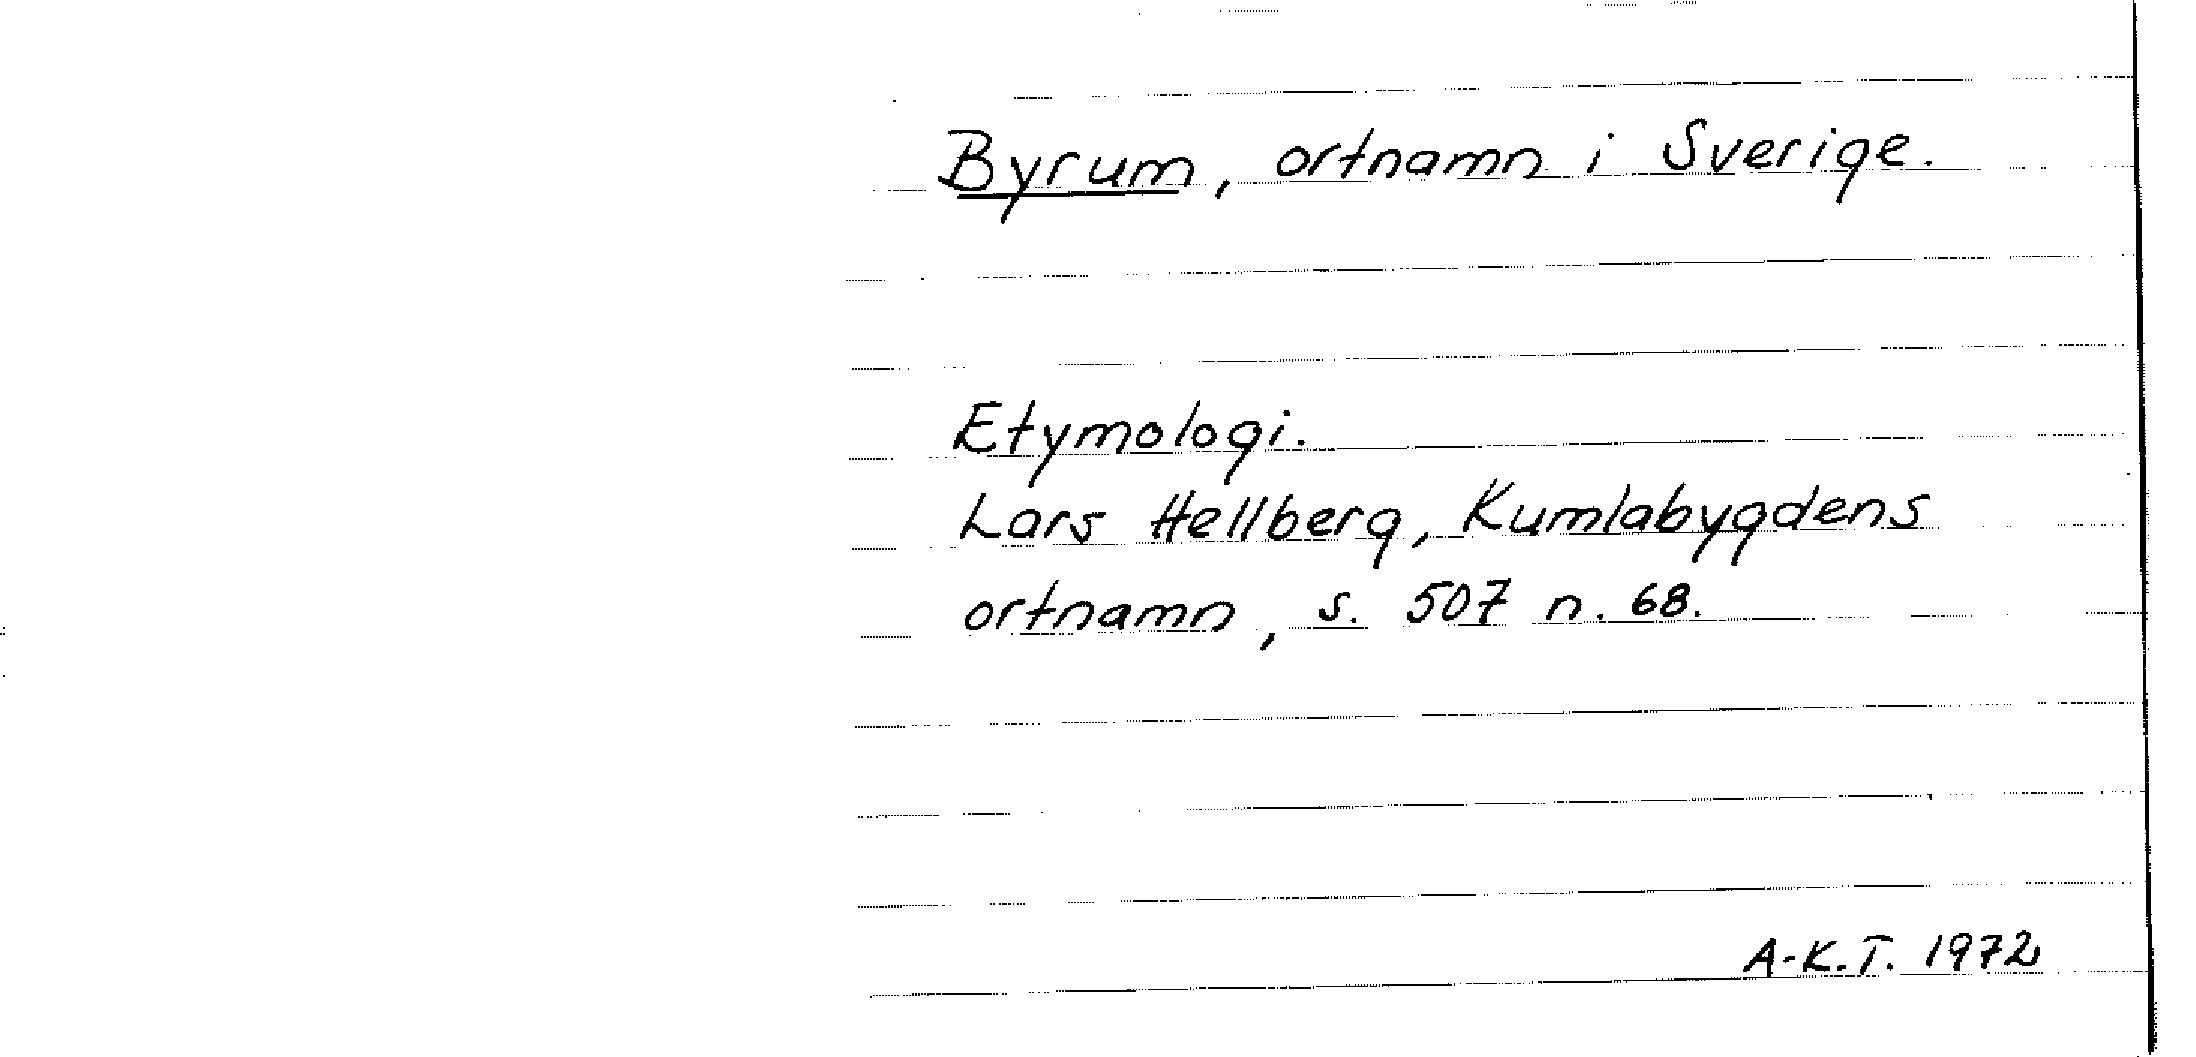 Byrum, ortnamn i Sverige.
Etymologi.
Lars Hellberg, Kumlabygdens
ortnamn, s. 507 n. 68.
A-K.T. 1972